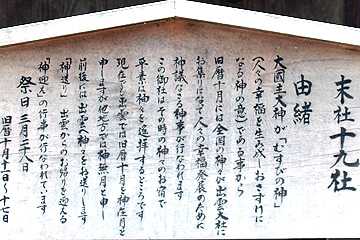 末社 十九社
由緒
大國主大神が「むすびの神」
(人々の幸福を生み成しおさずけに
なる神の意)である事から
旧暦十月には全国の神々が出雲大社に
お集りになって人々の幸福発展のために
神議なる神事が行なわれます
この御社はその時の神々のお宿で
平素は神々を遥拝するところです
現在でも出雲では旧暦十月を神在月と
申しますが他地方では神無月と申し
前後には出雲へ神々をお送りします
「神送り」出雲からのお帰りを迎える
「神迎え」の行事が行なわれています
祭日 三月二八日
旧暦十月十一日〜十七日